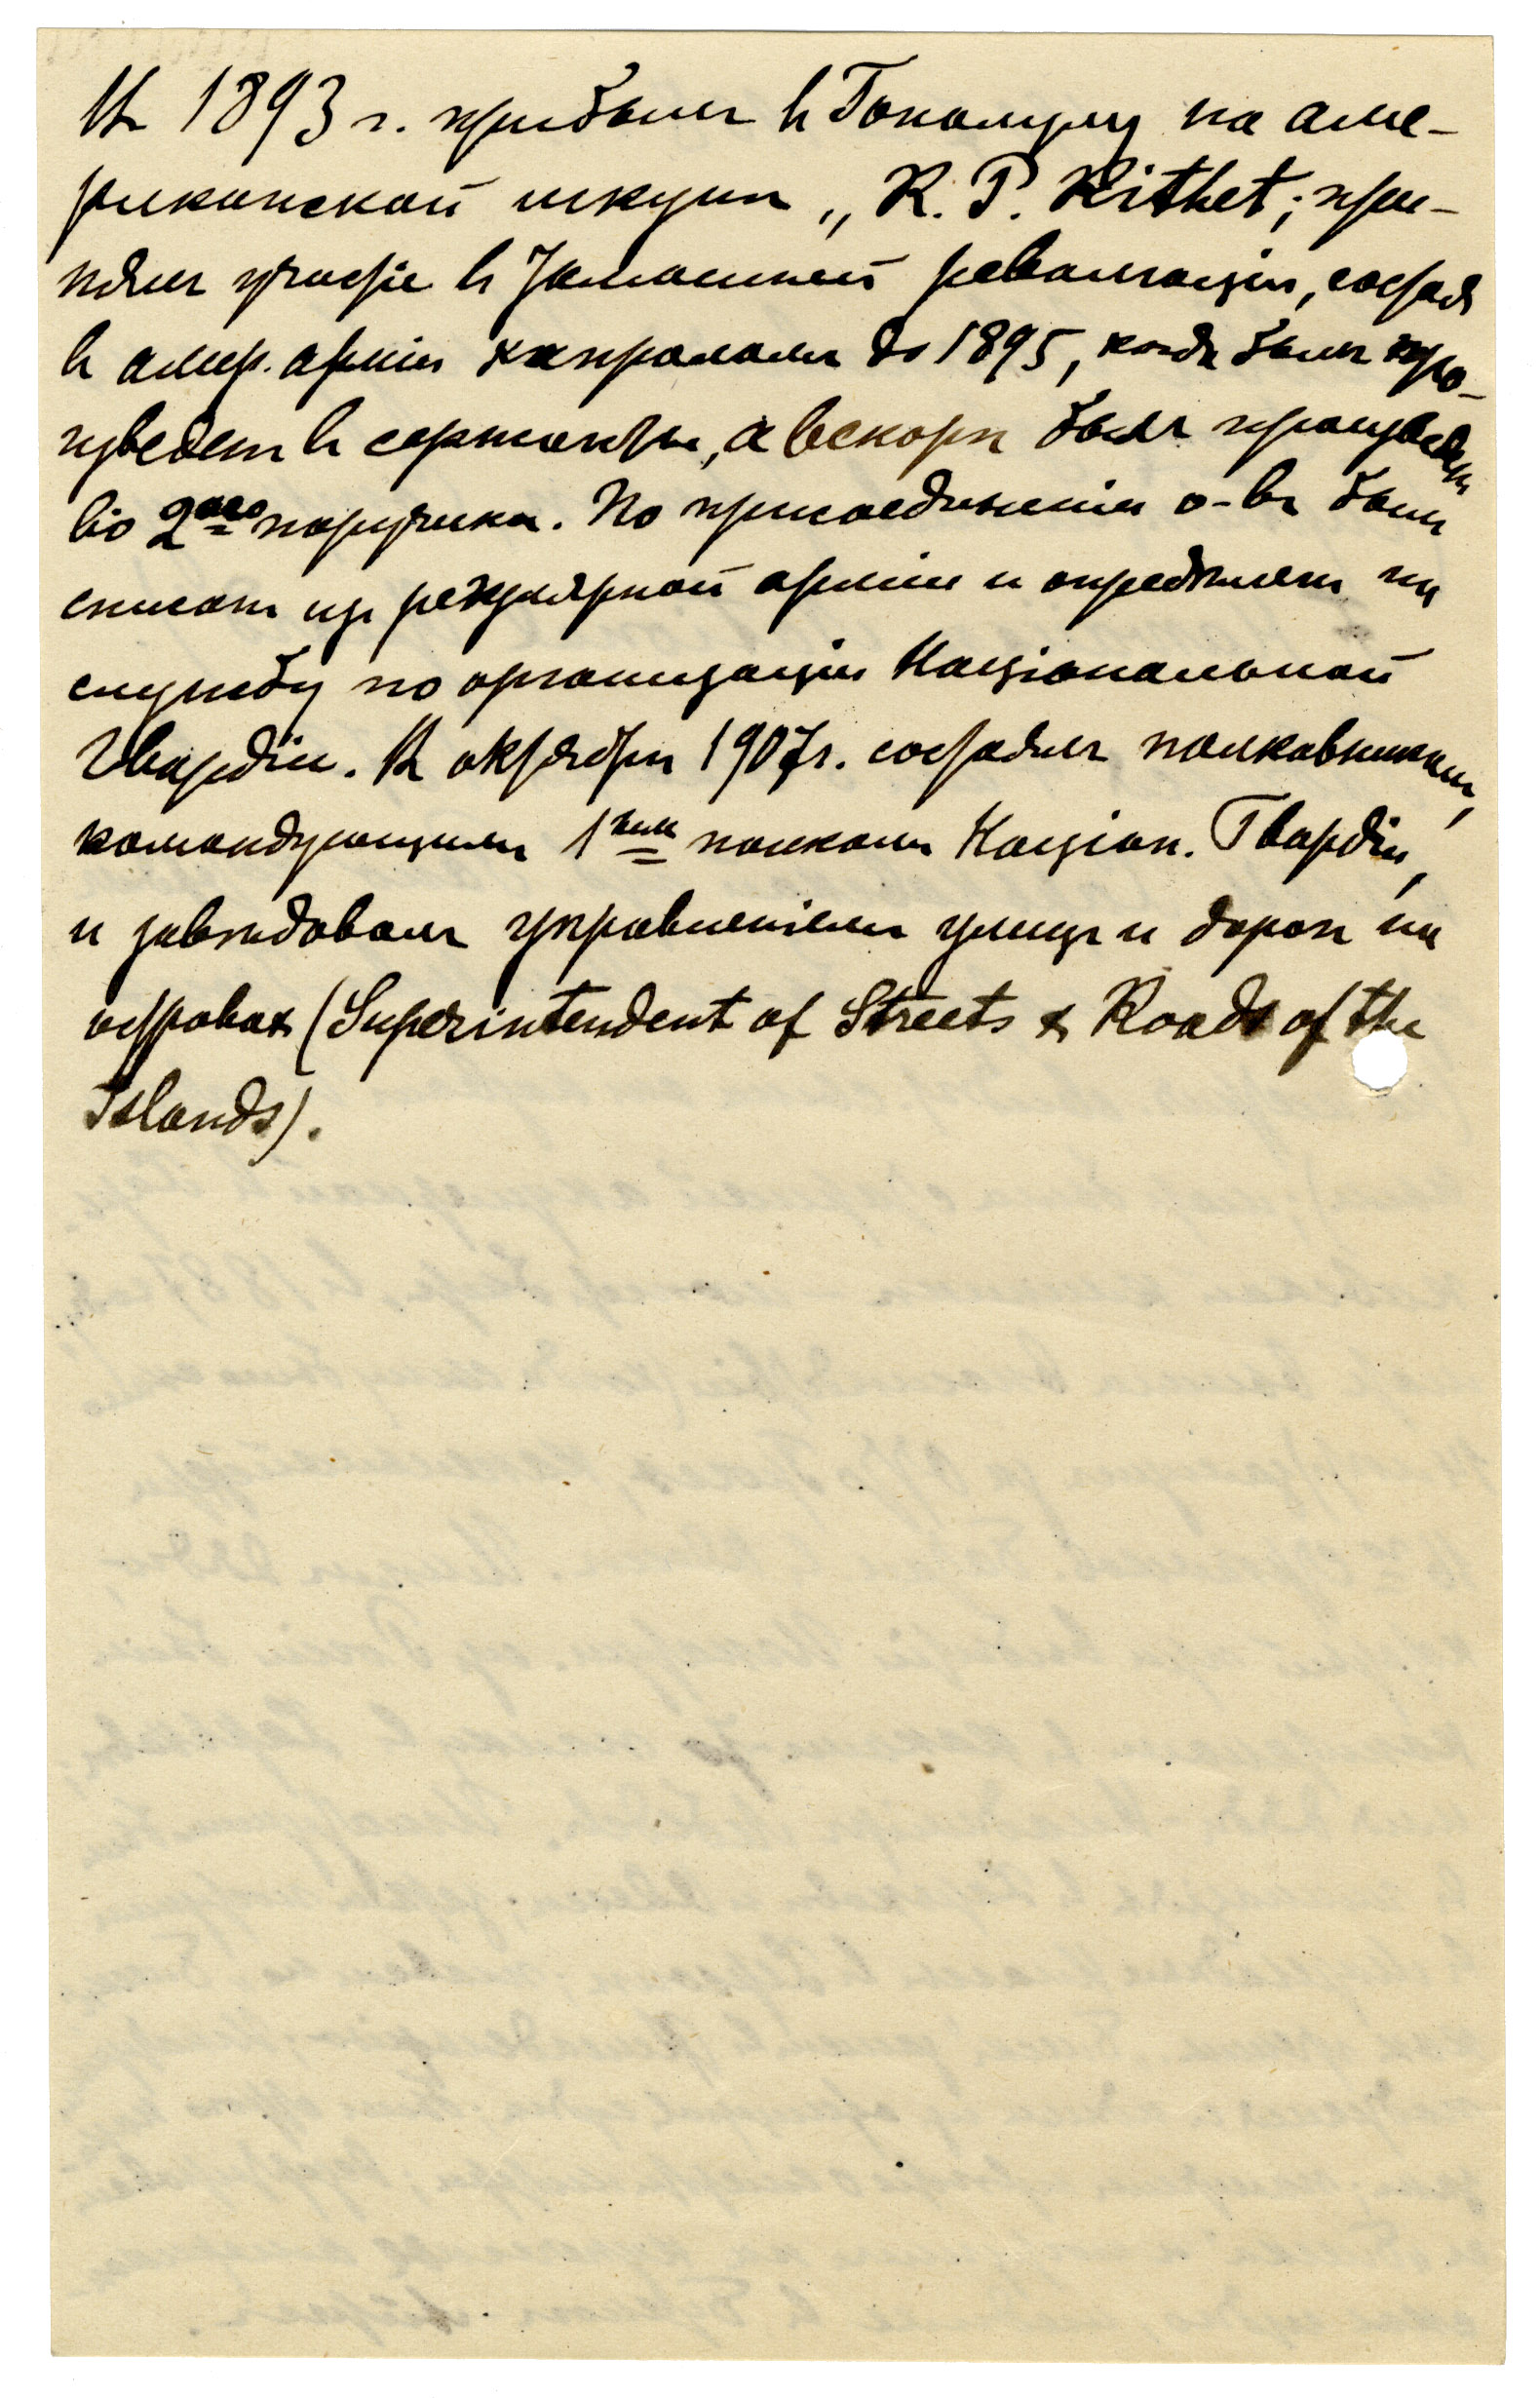 Въ 1893 г. прибылъ въ Гонолулу на аме-
риканской шкунѣ „R. P. Rithet; при-
нялъ участіе въ тамошней революціи, состоя
въ амер. арміи капраломъ до 1895, когда былъ про-
изведенъ въ сержанты, а вскорѣ былъ произведенъ
во 2ого поручика. По присоединеніи о-въ былъ
списанъ изъ регулярной арміи и опредѣленъ на
службу по организаціи Національной
Гвардіи. Въ октябрѣ 1907г. состоялъ полковникомъ,
командующимъ 1ымъ полкомъ Націон. Гвардіи,
и завѣдовалъ управленіемъ улицъ и дорогъ на
островахъ (Superintendent of Streets & Roads of the
Islands).